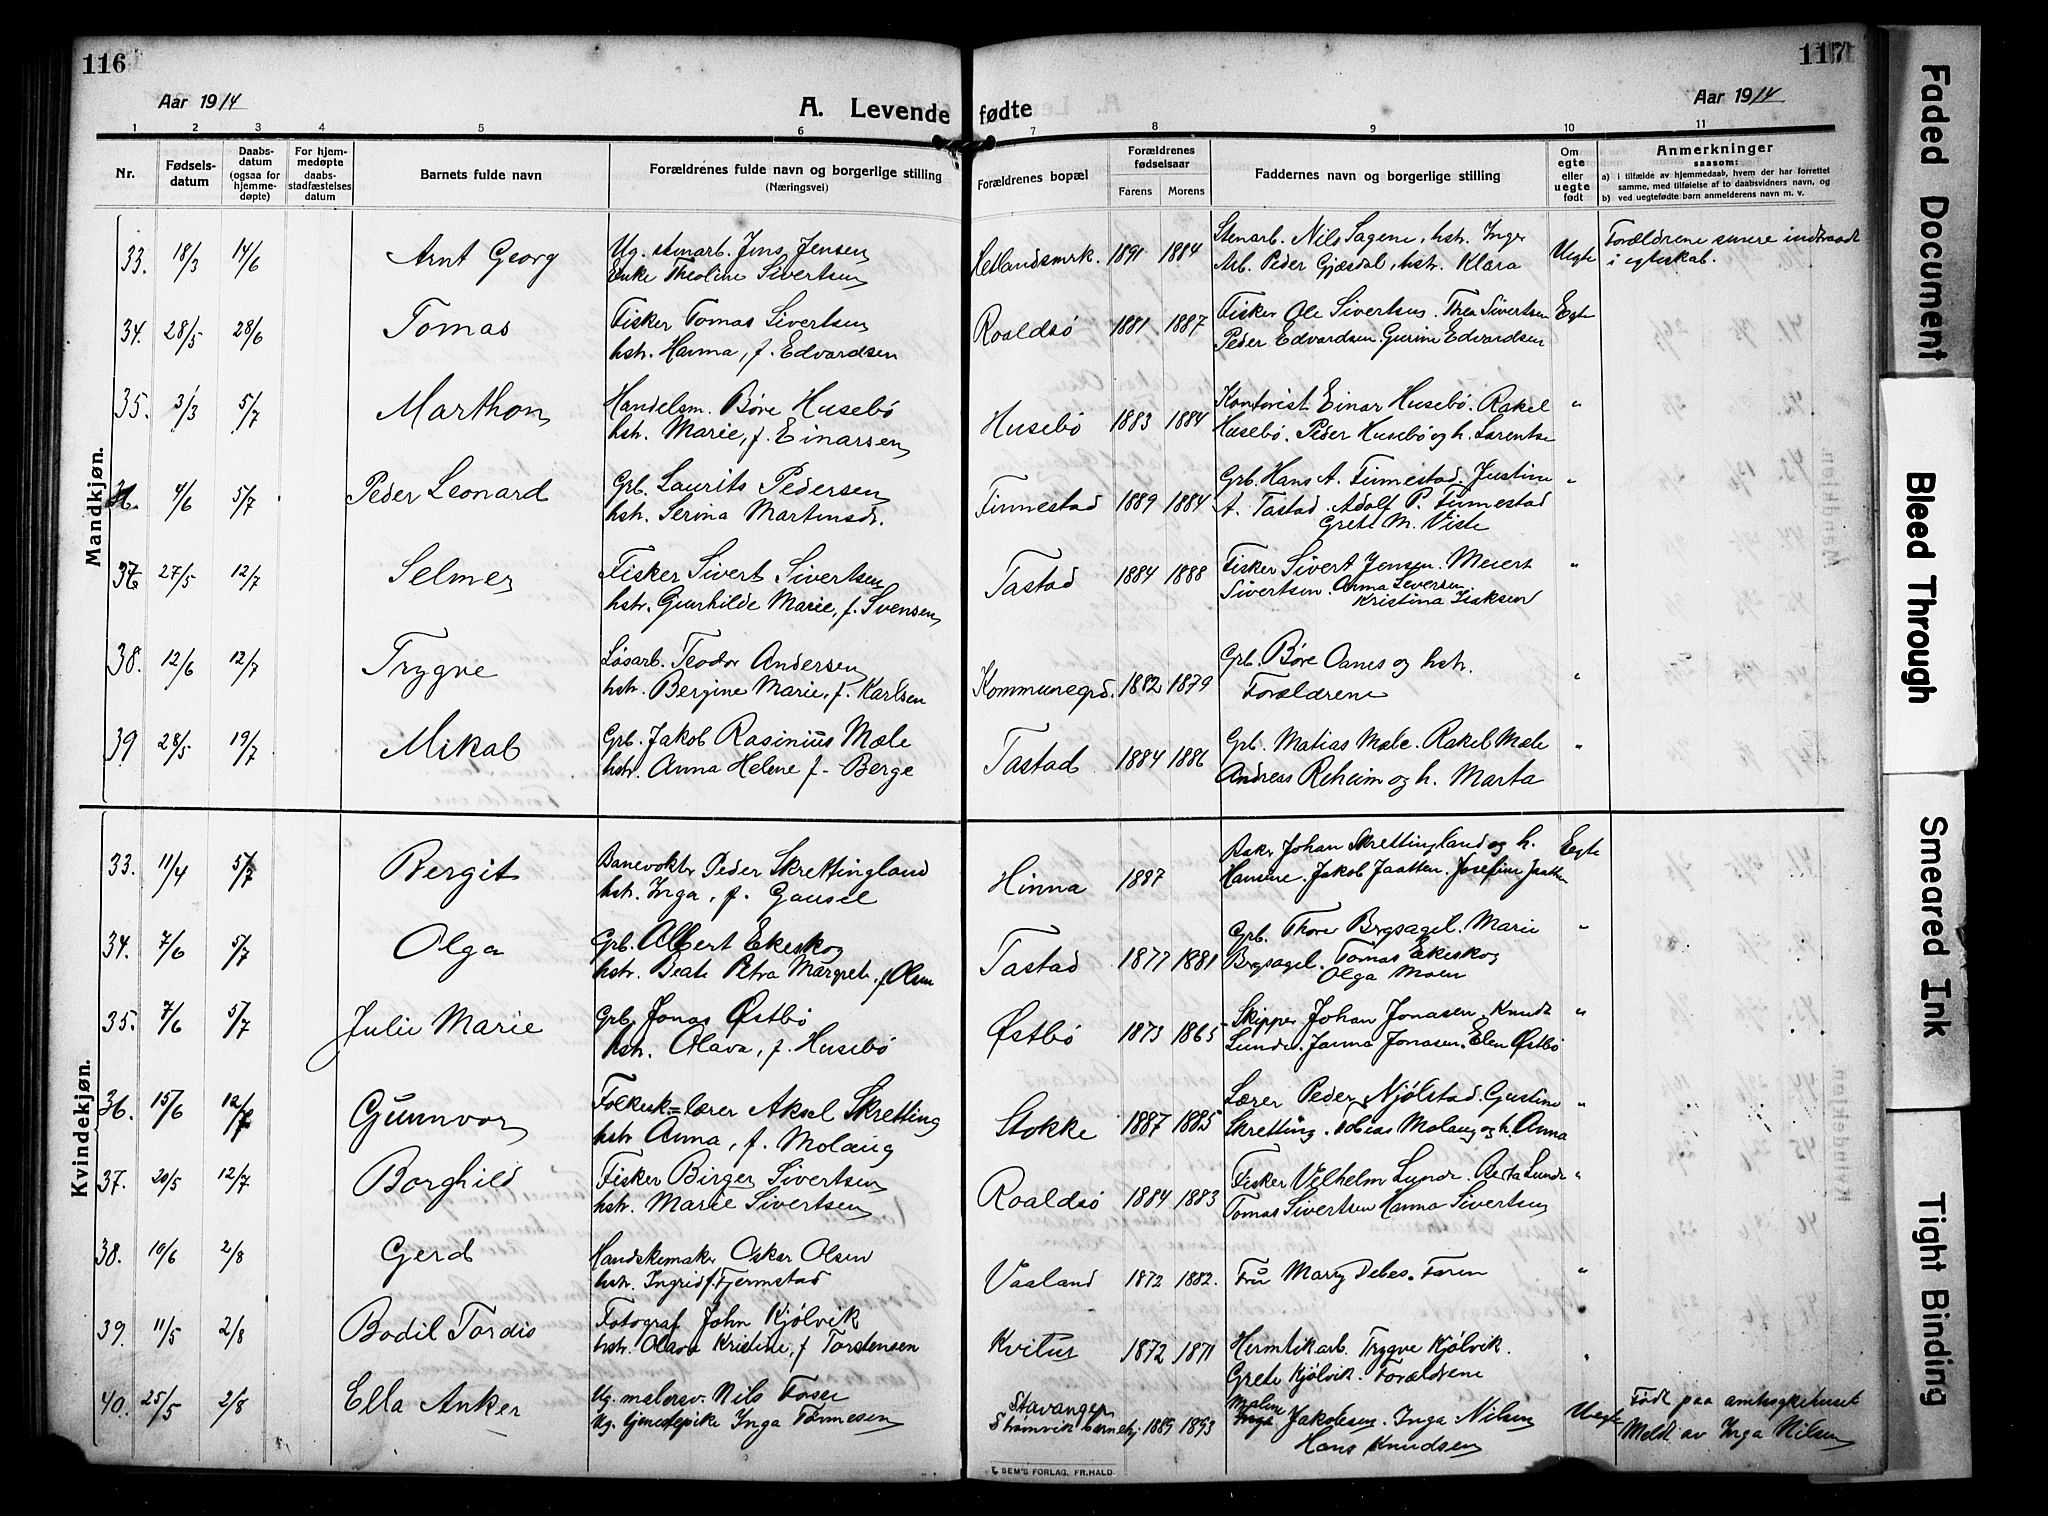 116
117
Aar 1914
A. Levende fødte
Aar 1914
1 2 3 4 5 6 7 8 9 10 11
Nr.
Fødsels-
datum
Daabs-
datum
(ogsaa for
hjemme-
døpte)
For hjem-
medøpte
daabs-
stadfæstelses
datum
Barnets fulde navn
Forældrenes fulde navn og borgerlige stilling
(Næringsvei)
Forældrenes bopæl
Forældrenes
fødselsaar
Farens Morens
Faddernes navn og borgerlige stilling
Om
egte
eller
uegte
født
Anmerkninger
saasom:
a) i tilfælde av hjemmedaab, hvem der har forrettet
samme, med tilføielse af to daabsvidners navn, og
b) ved uegtefødte barn anmelderens navn m. v.
Mandkjøn.
33. 18/3 14/6 Arnt Georg Ug. stenarb. Jens Jensen
Enke Theoline Sivertsen
Hetlandsmrk. 1891 1884 Stenarb. Nils Sagene, hstr. Inger
Arb. Peder Gjæsdal, hstr. Klara
Uegte Forældrene senere indtraadt
i egteskab.
34. 28/5 28/6 Tomas Fisker Tomas Sivertsen
hstr. Hanna, f. Edvardsen
Roaldsø 1881 1887 Fisker Ole Sivertsen. Thea Sivertsen
Peder Edvardsen. Gurine Edvardsen
Egte
35. 3/3 5/7 Marthon Handelsm. Børe Husebø
hstr. Marie, f. Einarsen
Husebø 1883 1884 Kontorist Einar Husebø. Rakel
Husebø. Peder Husebø og h. Larentse
"
36. 4/6 5/7 Peder Leonard Grb. Laurits Pedersen
hstr. Serina Martinsdr.
Finnestad 1889 1884 Grb. Hans A. Finnestad. Justine
A. Tastad. Adolf P. Finnestad
Grete M. Viste
"
37. 27/5 12/7 Selmer Fisker Sivert Sivertsen
hstr. Gunhilde Marie, f. Svensen
Tastad 1884 1888 Fisker Sivert Jensen. Meiert
Sivertsen. Anna Seversen
Kristina Isaksen
"
38. 12/6 12/7 Trygve Løsarb. Teodor Andersen
hstr. Bergine Marie, f. Karlsen
Kommunegrd. 1882 1879 Grb. Børe Oanes og hstr.
Forældrene
"
39 28/5 19/7 Mikal Grb. Jakob Rasinius Mæle
hstr. Anna Helene f. Berge
Tastad 1884 1886 Grb. Matias Mæle. Rakel Mæle
Andreas Reheim og h. Marta
"
Kvindekjøn.
33. 11/4 5/7 Bergit Banevokter Peder Skrettingland
hstr. Inga, f. Gausel
Hinna 1887 Baker Johan Skrettingland og h.
Hansine. Jakob Jaatten. Josefine Jaatten
Egte
34. 7/6 5/7 Olga Grb. Albert Ekeskog
hstr. Beate Petra Margrete, f. Olsen
Tastad 1877 1881 Grb. Thore Bergsagel. Marie
Bergsagel. Tomas Ekeskog
Olga Moen
"
35. 7/6 5/7 Julie Marie Grb. Jonas Østbø
hstr. Olava, f. Husebø
Østbø 1873 1865 Skipper Johan Jonasen. Knudt
Lunde. Janna Jonasen. Elen Østbø
"
36. 15/6 12/7 Gunnvor Folkesk=lærer Aksel Skretting
hstr Anna, f. Molaug
Stokke 1887 1885 Lærer Peder Njølstad. Gustine
Skretting. Tobias Molaug og h. Anna
"
37. 20/5 12/7 Borghild Fisker Birger Sivertsen
hstr. Marie Sivertsen
Roaldsø 1884 1883 Fisker Vilhelm Lunde. Berta Lunde
Tomas Sivertsen Hanna Sivertsen
"
38. 10/6 2/8 Gerd Handskemaker Oskar Olsen
hstr. Ingrid f. Fjermstad
Vaaland 1872 1882. Fru Marry Debes. Faren
"
39. 11/5 2/8 Bodil Tordis Fotograf John Kjølvik
hstr. Olava Kristine, f. Torstensen
Kvitur 1872 1871 Hermtikarb. Trygve Kjølvik.
Grete Kjølvik. Forældrene
"
40. 25/5 2/8 Ella Anker Ug. malersv. Nils Fosse
Ug. tjenestepike Inga Tønnesen
Stavanger
Strømvik barnehj. 1889 1893 Malene
Inga Jakobsen. Inga Nilsen
Hans Knudsen
Uegte Født paa amtssykehuset
Meldt av Inga Nilsen
E. SEM'S FORLAG, FR.HALD.
Faded Document
Bleed Through
Smeared Ink
Tight Binding